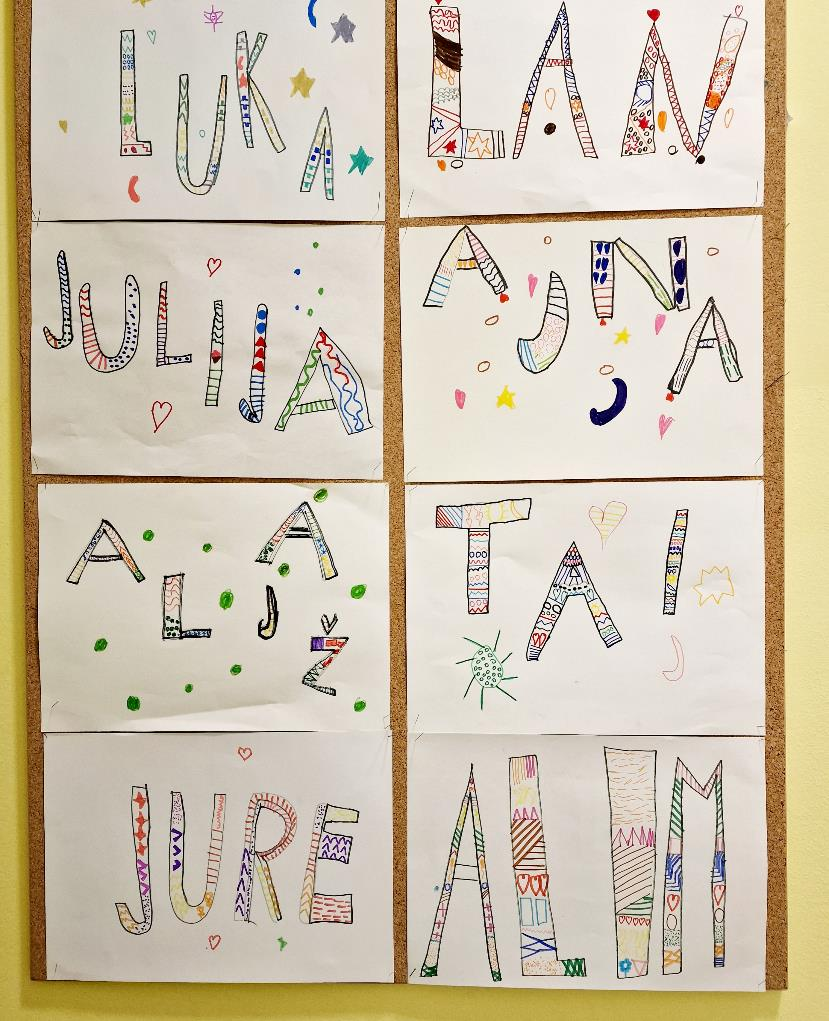 LUKA
LAN
JULIJA
AJNA
ALJAŽ
TAI
JURE
ALIM